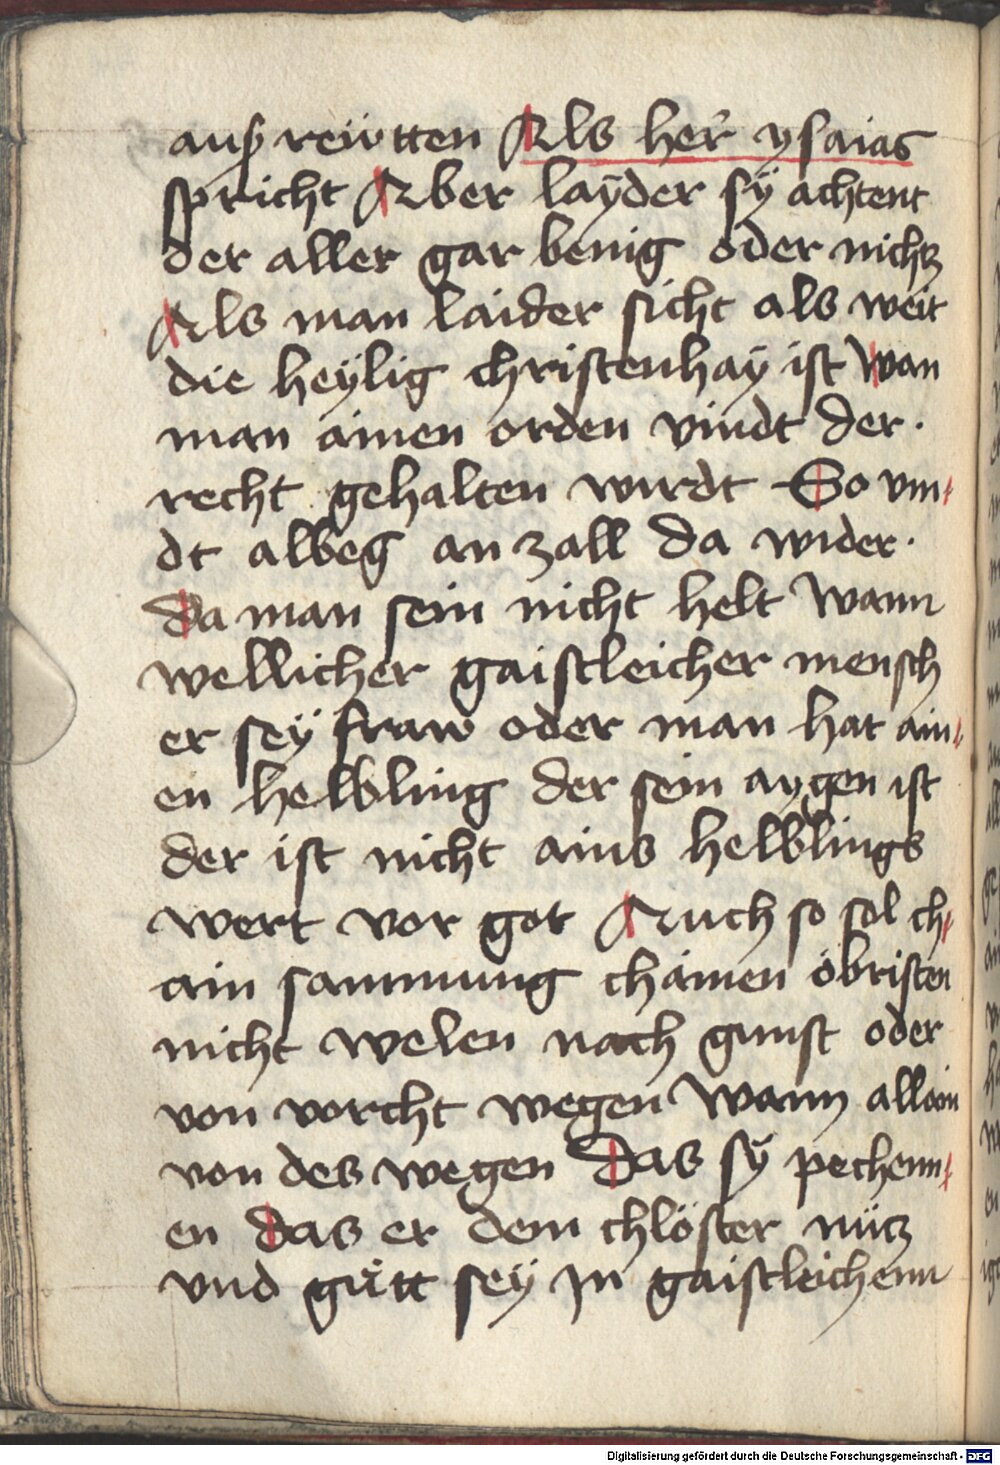 auß reẅtten Als her̃ ysaias
spricht Aber laÿder sÿ achtent
der aller gar benig oder nichtz
Als man laider sicht als weit
die heÿlig christenhaÿ ist wan
man ainen orden vindt der·
recht gehalten wirdt So vin-
dt albeg an zall da wider·
da man sein nicht helt Wann
wellicher gaistleicher mensch
er seÿ fraw oder man hat ain-
en helbling der sein aygen ist
der ist nicht ains helblings
wert vor got Auch so sol ch-
ain sammung chainen öbristen
nicht welen nach gunst oder
von vorcht wegen Wann allain
von des wegen Das sÿ pechenn-
en das er dem chlöster nütz
vnd gůtt seÿ Jn gaistleichenn
Digitalisierung gefördert durch die Deutsche Forschungsgemeinschaft - DFG